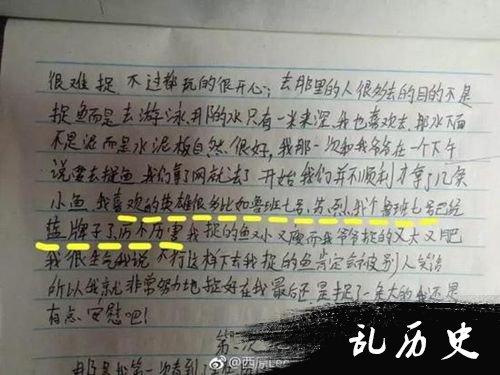 很难捉 不过都玩的很开心；去那里的人很多去的目的不是
捉鱼而是去游泳，那的水只有一米来深，我也喜欢去，那水下面
不是泥而是水泥板自然很好，我那一次和爷爷在一个下午
说要去捉鱼 我们拿了网就去了 开始我们并不顺利才拿了几条
小鱼 我喜欢的英雄很多比如鲁班七号，苏烈，我个鲁班七号已经
蓝牌子了厉不厉害 我捉的鱼又小又瘦而我爷爷捉的又大又肥
我很生气我说 不行这样下去我捉的鱼肯定会被别人笑话
所以我就非常努力地捉好在我最后还是捉了一条大的我还是
有点安慰吧！
第一次
那是我第一次看到了
@西房Lee
乱历史